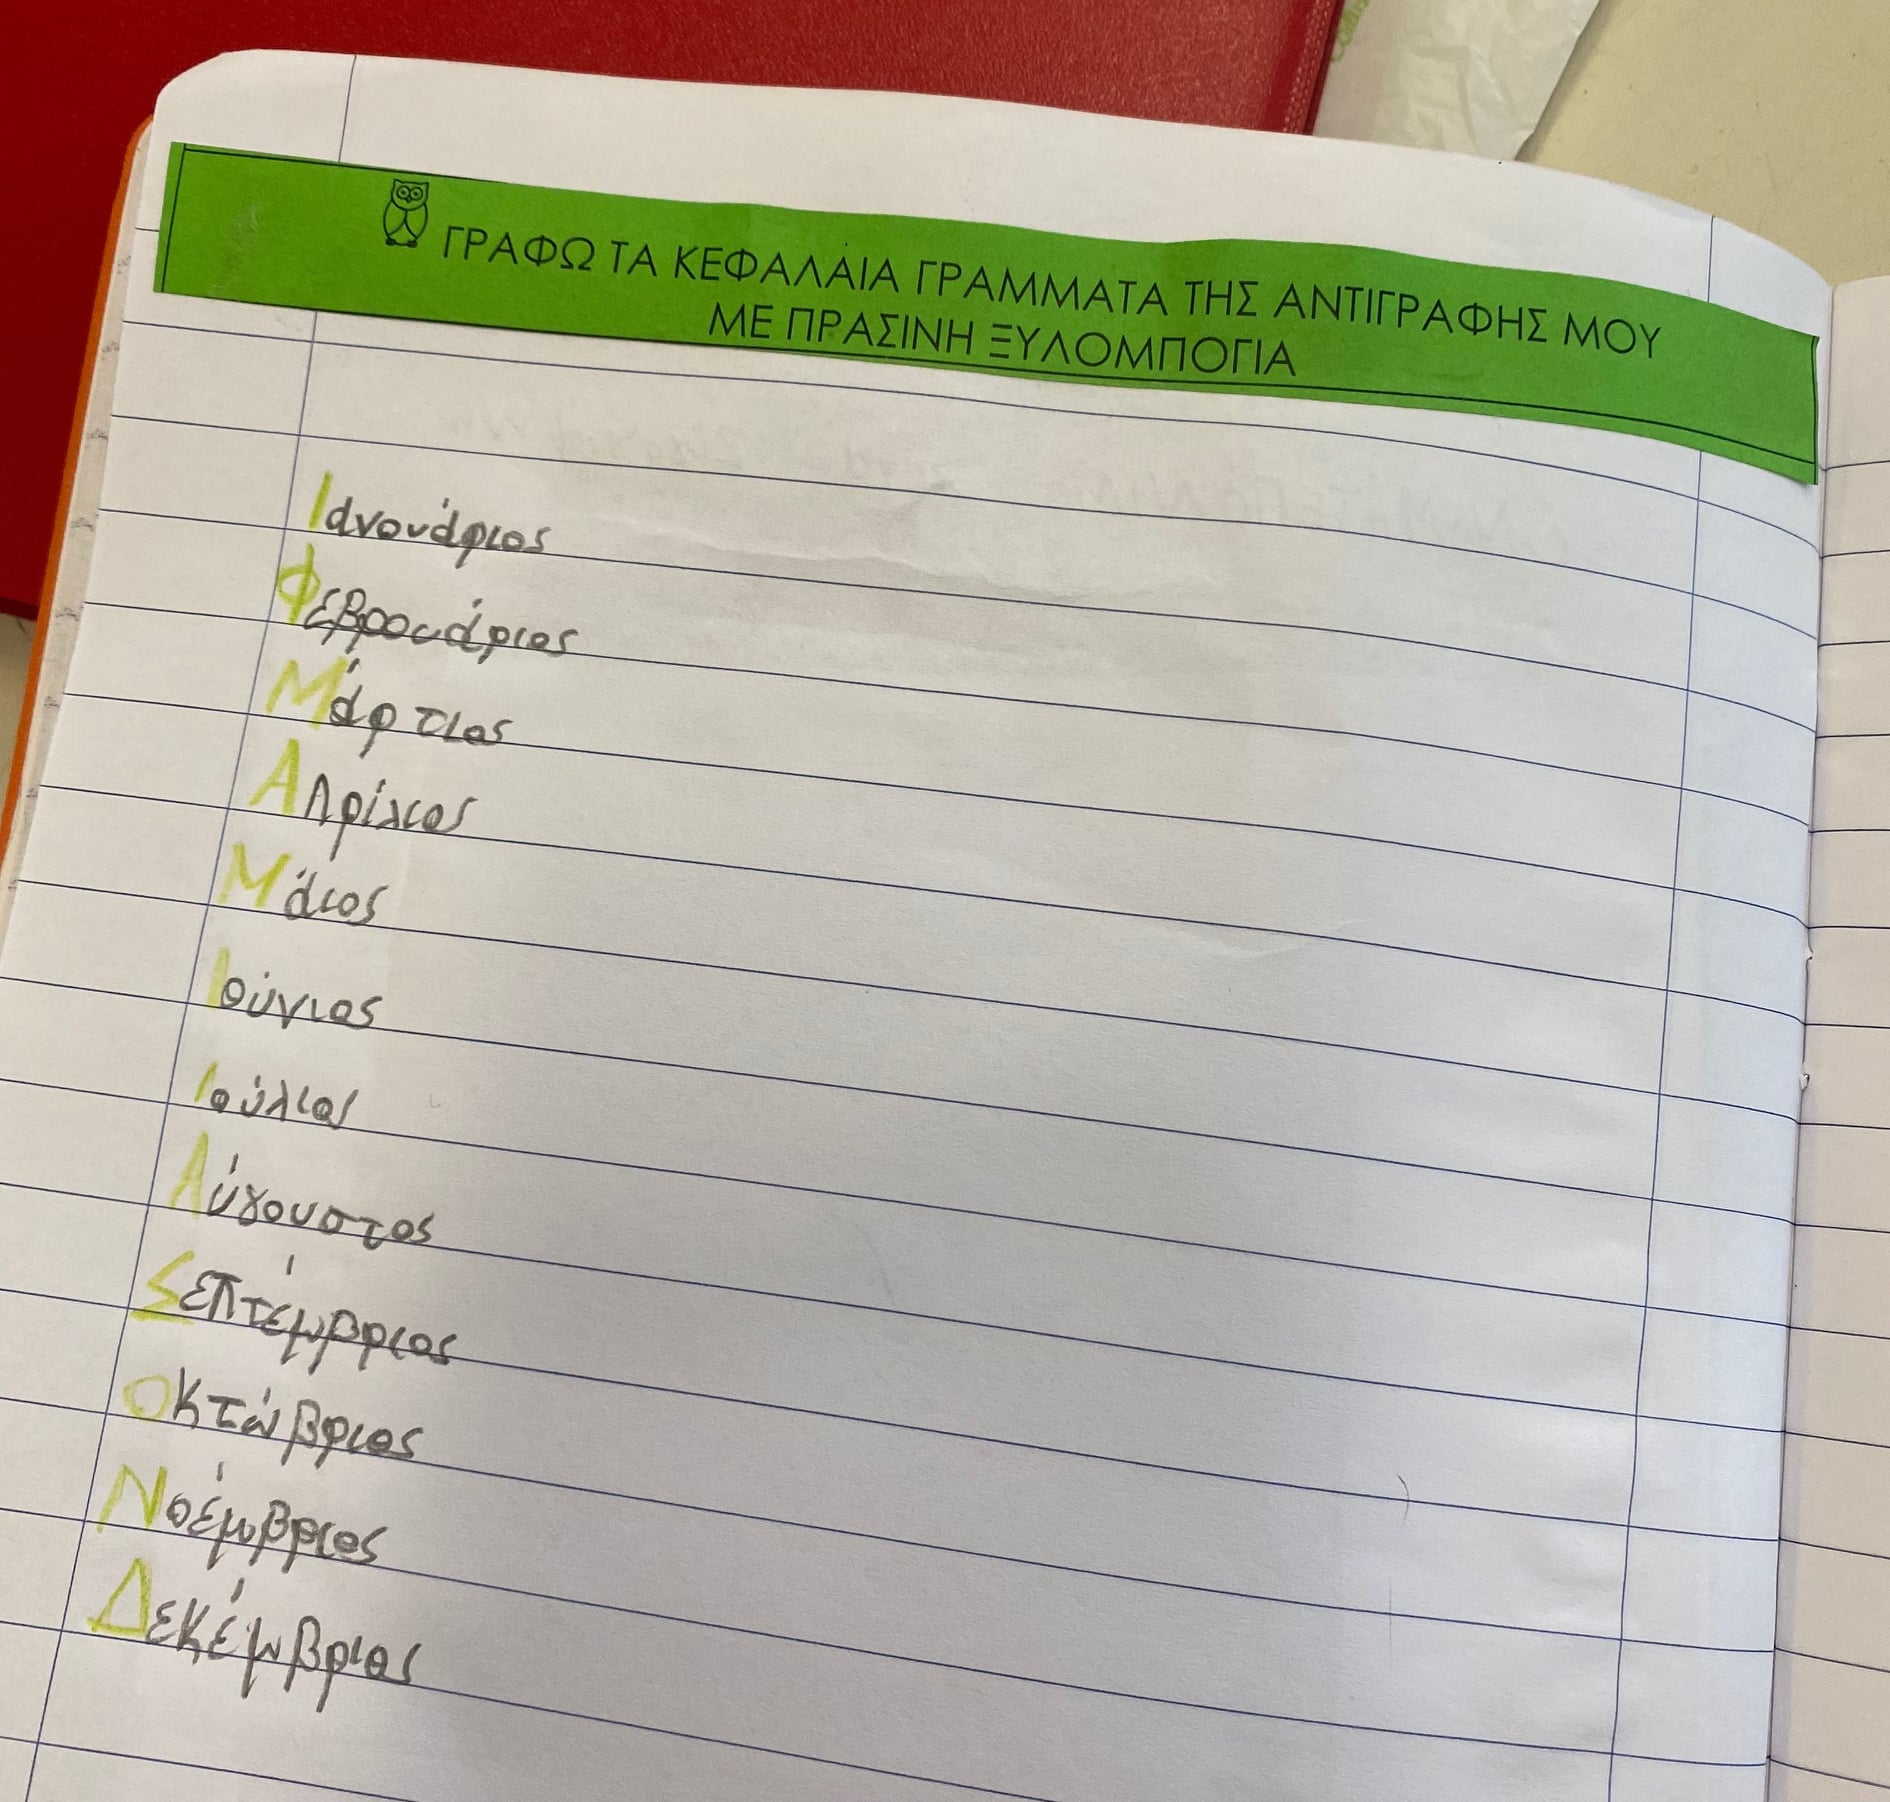 ΓΡΑΦΩ ΤΑ ΚΕΦΑΛΑΙΑ ΓΡΑΜΜΑΤΑ ΤΗΣ ΑΝΤΙΓΡΑΦΗΣ ΜΟΥ
ΜΕ ΠΡΑΣΙΝΗ ΞΥΛΟΜΠΟΓΙΑ
Ιανουάριος
Φεβρουάριος
Μάρτιος
Απρίλιος
Μάιος
Ιούνιος
Ιούλιος
Αύγουστος
Σεπτέμβριος
Οκτώβριος
Νοέμβριος
Δεκέμβριος